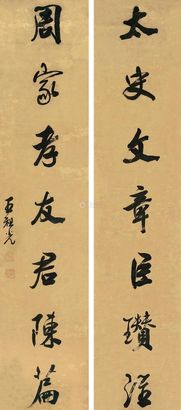 太史文章臣瓚
周家孝友君陳篇